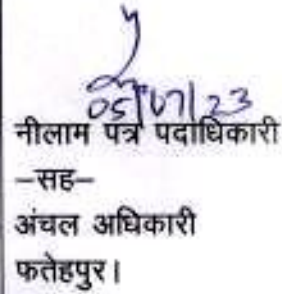 05/07/23
नीलाम पत्र पदाधिकारी
–सह–
अंचल अधिकारी
फतेहपुर।